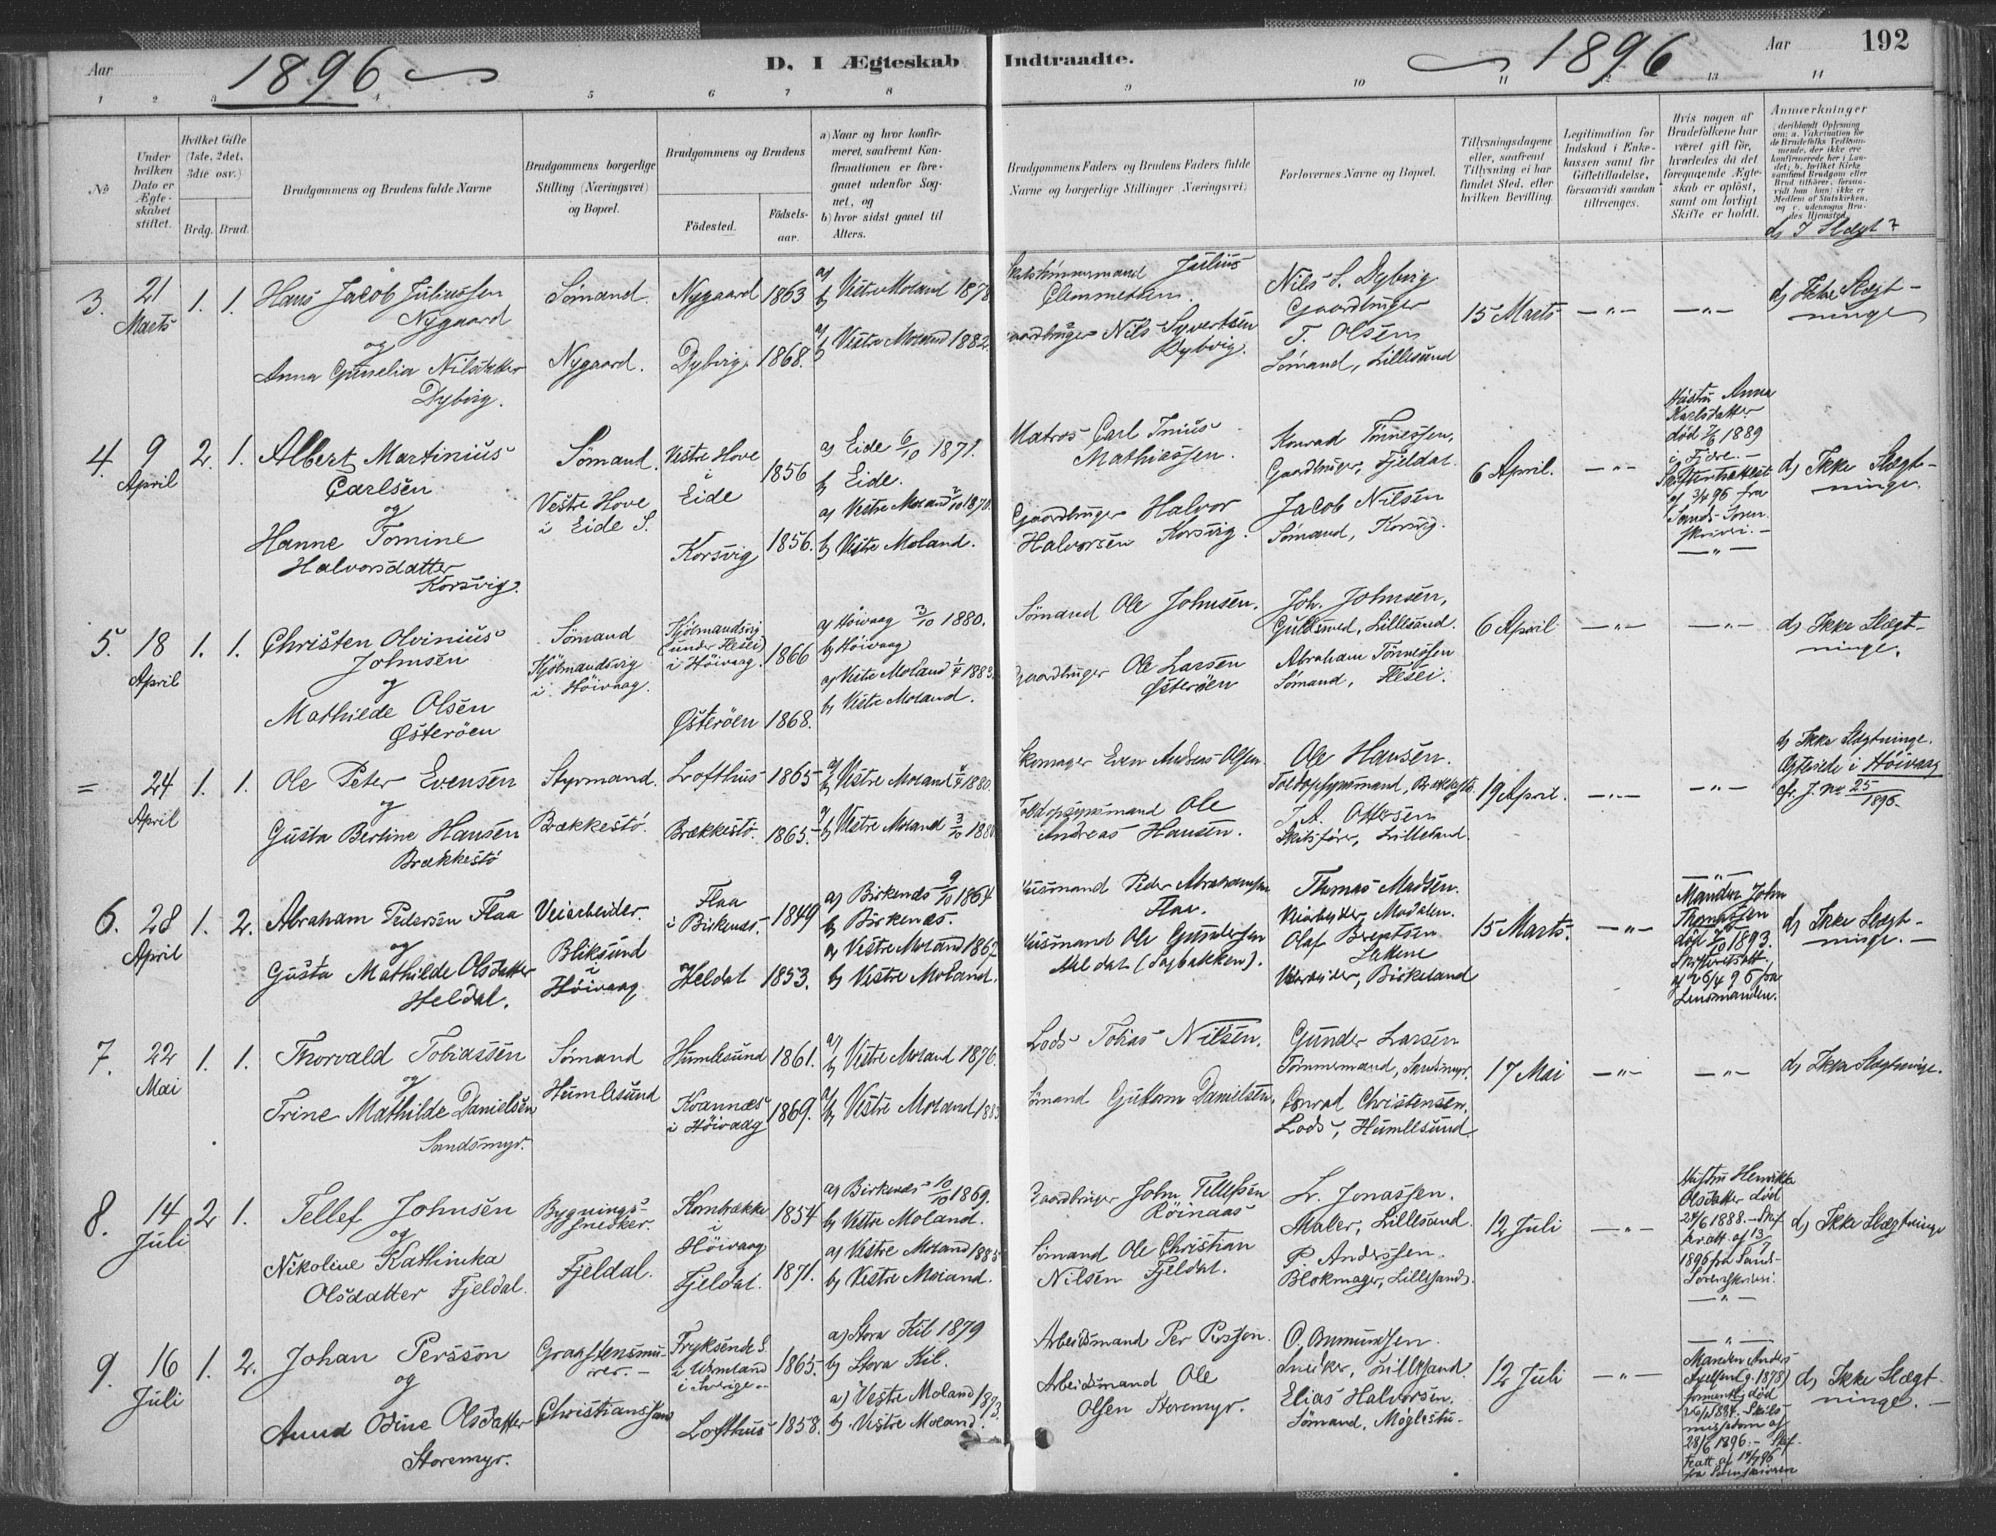 Aar 1896 D. I Ægteskab Indtraadte. 1896 Aar 192
1 2 3 4 5 6 7 8 9 10 11 12 13 14
No
Under hvilken Dato er Ægteskabet stiftet.
Hvilket Gifte (1ste, 2det, 3die osv.)
Brdg. Brud.
Brudgommens og Brudens fulde Navne
Brudgommens borgerlige Stilling (Næringsvei) og Bopæl.
Brudgommens og Brudens
Fødested.
Fødselsaar.
a) Naar og hvor konfirmeret, saafremt Konfirmationen er foregaaet udenfor Sognet, og
b) hvor sidst gaaet til Alters.
Brudgommens Faders og Brudens Faders fulde Navne og borgerlige Stillinger (Næringsvei)
Forlovernes Navne og Bopæl.
Tillysningsdagene eller, saafremt Tillysning ei har fundet Sted, efter hvilken Bevilling.
Legitimation for Indskud i Enkekassen samt for Giftetilladelse, forsaavidt saadan tiltrænges.
Hvis nogen af Brudefolkene har været gift før, hvorledes da det foregaaende Ægteskab er opløst, samt om lovligt Skifte er holdt.
Anmærkninger
d) I Slægt?
3. 21 Marts 1. 1.
Hans Jacob Juliussen
Nygaard
og
Anna Gunelia Nilsdatter
Dybvig.
Sømand.
Nygaard.
Nygaard 1863
Dybvig. 1868.
a) b) Vestre Moland 1878
a) b) Vestre Moland 1882.
Skibstømmermand Julius
Clemmetsen.
Gaardbruger Nils Syvertsen
Dybvig.
Nils S. Dybvig
Gaardbruger
T. Olsen
Sømand, Lillesand
15 Marts
d) Ikke Slægtninge
4. 9 April 2. 1.
Albert Martinius
Carlsen
og
Hanne Tomine
Halvorsdatter
Korsvig.
Sømand.
Vestre Hove
i Eide S.
Vestre Hove
i
Eide 1856
Korsvig 1856.
a) Eide 6/10 1871.
b) Eide.
a) Vestre Moland 2/10 1870.
b) Vestre Moland.
Matros Carl
Mathiassen.
Gaardbruger Halvor
Halvorsen Korsvig.
Konrad Tønnessen,
Gaardbruger, Fjeldal.
Jacob Nilsen
Sømand, Korsvig.
6 April.
Hustru Anna
Karlsdatter
død 1889
fra
Sands Sorenskriveri.
d) Ikke Slægtninge.
5. 18 April 1. 1.
Christen Olvinius
Johnsen
og
Mathilde Olsen
Østerøen
Sømand
Kjølmandsvig
i Høivaag.
Kjølmandsvig
(under Flesei)
i Høivaag. 1866
Østerøen 1868.
a) Høivaag 3/10 1880.
b) Høivaag
a) Vestre Moland 1/4 1883.
b) Vestre Moland.
Sømand Ole Johnsen.
Gaardbruger Ole Larsen
Østerøen
Joh. Johnsen,
Guldsmed, Lillesand.
Abraham Tønnessen
Sømand, Flesei.
6 April
d) Ikke Slægtninge.
= 24 April 1. 1.
Ole Peter Evensen
og
Gusta Bertine Hansen
Brækkestø
Styrmand.
Brækkestø.
Lofthus 1865
Brækkestø. 1865.
a) b) Vestre Moland 1880.
a) b) Vestre Moland 3/10
Skomager Even Andreas Olsen.
Toldopsynsmand Ole
Andreas Hansen.
Ole Hansen.
Toldopsynsmand,
A. Ottersen
Skibsfører, Lillesand.
19 April.
d) Ikke Slægtninge.
i Høivaag
cfr. J. No 25/1896.
6. 28 April 1. 2.
Abraham Pedersen Flaa
og
Gusta Mathilde Olsdatter
Heldal.
Veiarbeider.
Bliksund
i
Høivaag
Flaa
i Birkenes. 1849
Heldal 1853.
a) Birkenes 9/10 1864
b) Birkenes
a) Vestre Moland 1862
b) Vestre Moland.
Husmand Peder Abrahamsen
Flaa.
Husmand Ole Gundersen
Thomas Madsen.
Olaf Berntsen
Veiarbeider, Birkeland
15 Marts.
Manden John
Thomassen
død 1893.
fra
Lensmanden.
d) Ikke Slægtninge.
7. 22 Mai 1. 1.
Thorvald Tobiassen
og
Trine Mathilde Danielsen
Sandsmyr.
Sømand
Humlesund
Humlesund 1861.
Kvannæs
i Høivaag 1869.
a) b) Vestre Moland 1876.
a) b) Vestre Moland 1883
Lods Tobias Nilsen.
Sømand Guttorm Danielsen.
Gunder Larsen
Tømmermand, Sandsmyr.
Conrad Christensen.
Lods, Humlesund.
17 Mai
d) Ikke Slægtninge.
8. 14 Juli 2 1.
Tellef Johnsen
og
Nikoline Kathinka
Olsdatter Fjeldal.
Bygningssnedker.
Fjeldal.
Kornbrække
i
Høivaag 1854
Fjeldal. 1871.
a) Birkenes 10/10 1869.
b) Vestre Moland.
a) Vestre Moland 1885
b) Vestre Moland.
Gaardbruger John Tellefsen
Røinaas
Sømand Ole Christian
Nilsen Fjeldal.
L. Jonassen.
Maler, Lillesand.
P. Anderssen.
Blokmager, Lillesand.
12 Juli
Hustru Henrikke
Olsdatter død
24/6 1888.
1896 fra Sands
Sorenskriveri.
d) Ikke Slægtninge
9. 16 Juli 1. 2.
Johan Persson
og
Anna Odine Olsdatter
Storemyr.
Graastensmurer.
Christianssand
Fryksende S.
i Vermland
i Sverige 1865.
Lofthus 1858.
a) Stora Kil 1879
b) Stora Kil.
a) Vestre Moland 1873.
b) Vestre Moland.
Arbeidsmand Per Persson.
Arbeidsmand Ole
Olsen Storemyr.
O. Anmundsen.
Snedker, Lillesand.
Elias Halvorsen.
Sømand, Møglestu.
12 Juli
Manden Anders
død
28/6 1896.
fra Sorenskriveren
d) Ikke Slægtninge.